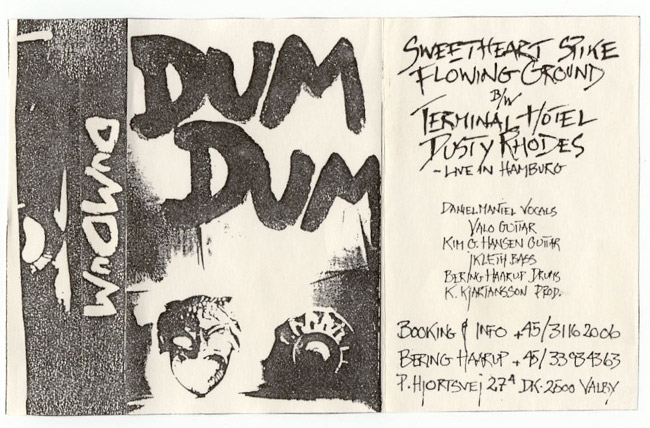 DUMDUM
DUM
DUM
SWEETHEART SPIKE
FLOWING GROUND
B/W
TERMINAL HOTEL
DUSTY RHODES
- LIVE IN HAMBURG
DANIEL MANTEL VOCALS
VALO GUITAR
KIM G. HANSEN GUITAR
J KLETH BASS
BERING HAARUP DRUMS
K. KJARTANSSON PROD.
BOOKING & INFO +45/31162006
BERING HAARUP +45/33934363
P. HJORTSVEJ 27⁴ DK-2500 VALBY